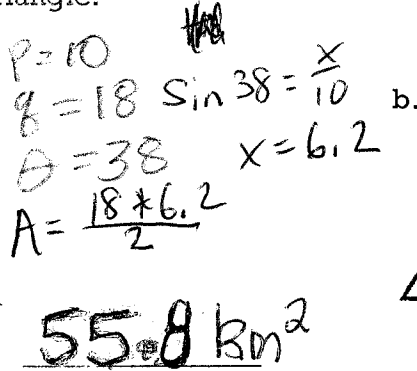 P = 10
q = 18 Sin 38 = x/10
b.
θ = 38
x = 6.2
A = 18 * 6.2 / 2
55.8 km²